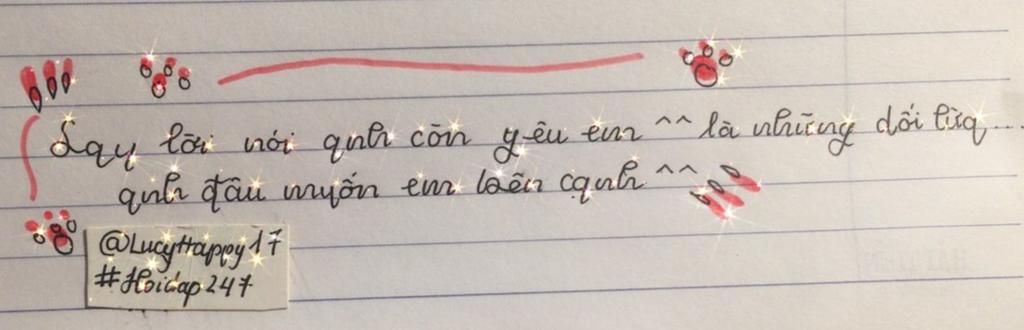 Say lời nói anh còn yêu em ^^ là những dối lừa...
anh đâu muốn em bên cạnh ^^
@LucyHappy17
#Hoidap247